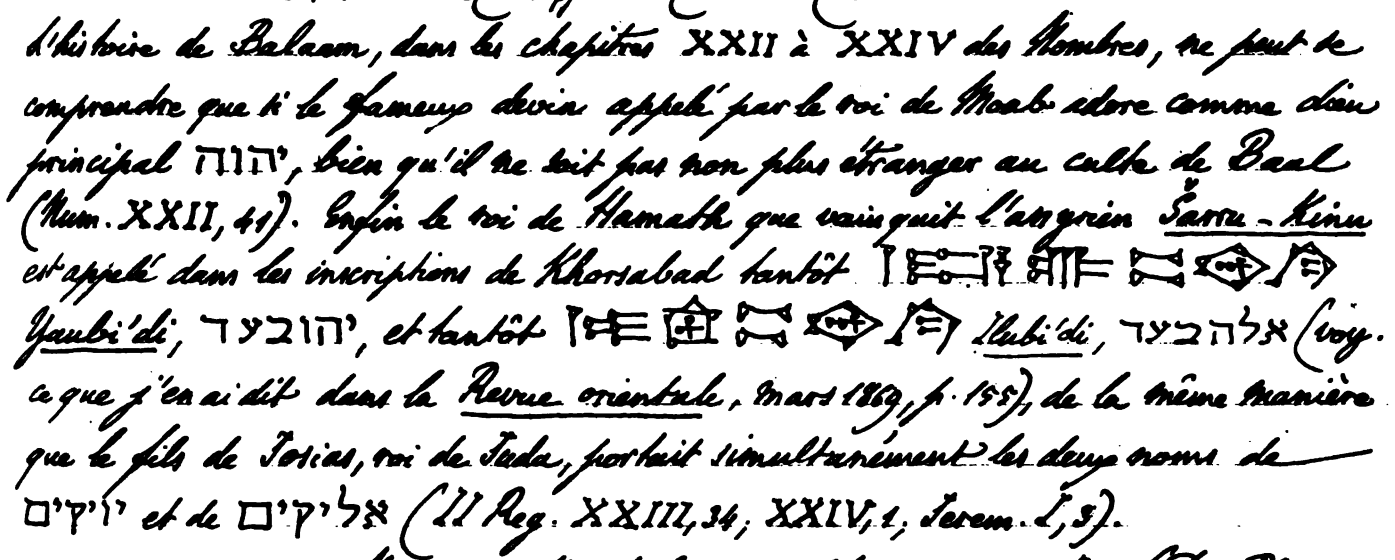 L'histoire de Balaam, dans les chapitres XXII à XXIV des Nombres, ne peut se
comprendre que si le fameux devin appelé par le roi de Moab adore comme dieu
principal יהוה, bien qu'il ne soit pas non plus étranger au culte de Baal
(Num. XXII, 41). Enfin le roi de Hamath que vainquit l'assyrien Šarru-Kinu
est appelé dans les inscriptions de Khorsabad tantôt
Yaubi'di, יהובעד, et tantôt Ilubi'di, אלהבעד (voy.
ce que j'en ai dit dans la Revue orientale, mars 1869, p. 155), de la même manière
que le fils de Josias, roi de Juda, portait simultanément les deux noms de
יויקים et de אליקים (II Reg. XXIII, 34; XXIV, 1; Jerem. I, 3).